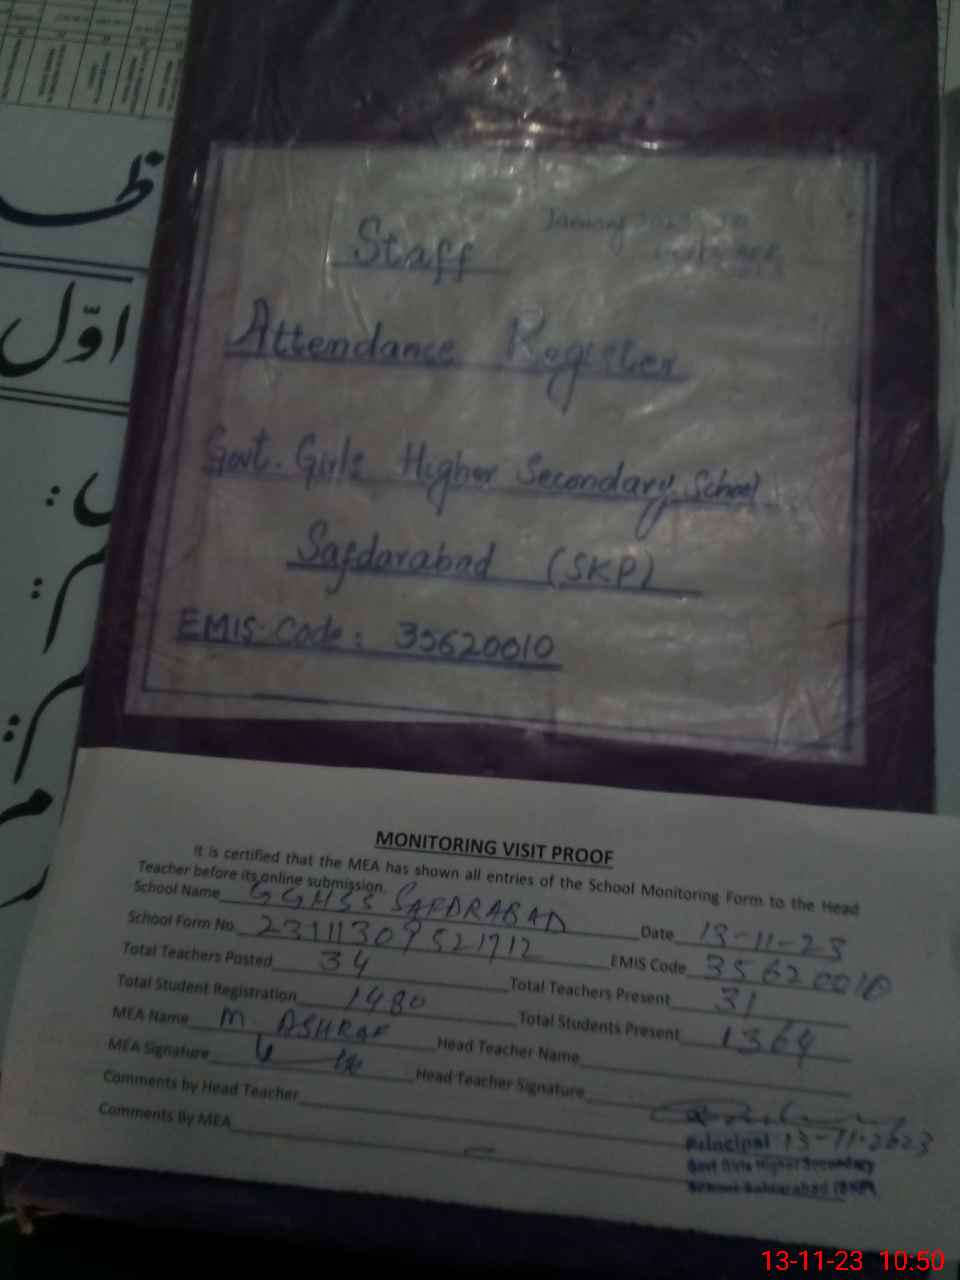 ظ
اوّل
Staff
January
Attendance Register
Govt. Girls Higher Secondary School
Safdarabad (SKP)
EMIS Code: 35620010
MONITORING VISIT PROOF
It is certified that the MEA has shown all entries of the School Monitoring Form to the Head
Teacher before its online submission.
School Name GGHSS SAFDRABAD Date 13-11-23
School Form No. 23111309521712 EMIS Code 35620010
Total Teachers Posted 34 Total Teachers Present 31
Total Student Registration 1480 Total Students Present 1364
MEA Name M ASHRAF Head Teacher Name
MEA Signature Head Teacher Signature
Comments by Head Teacher
Comments By MEA
Principal 13-11-2023
Govt Girls Higher Secondary
School
13-11-23 10:50